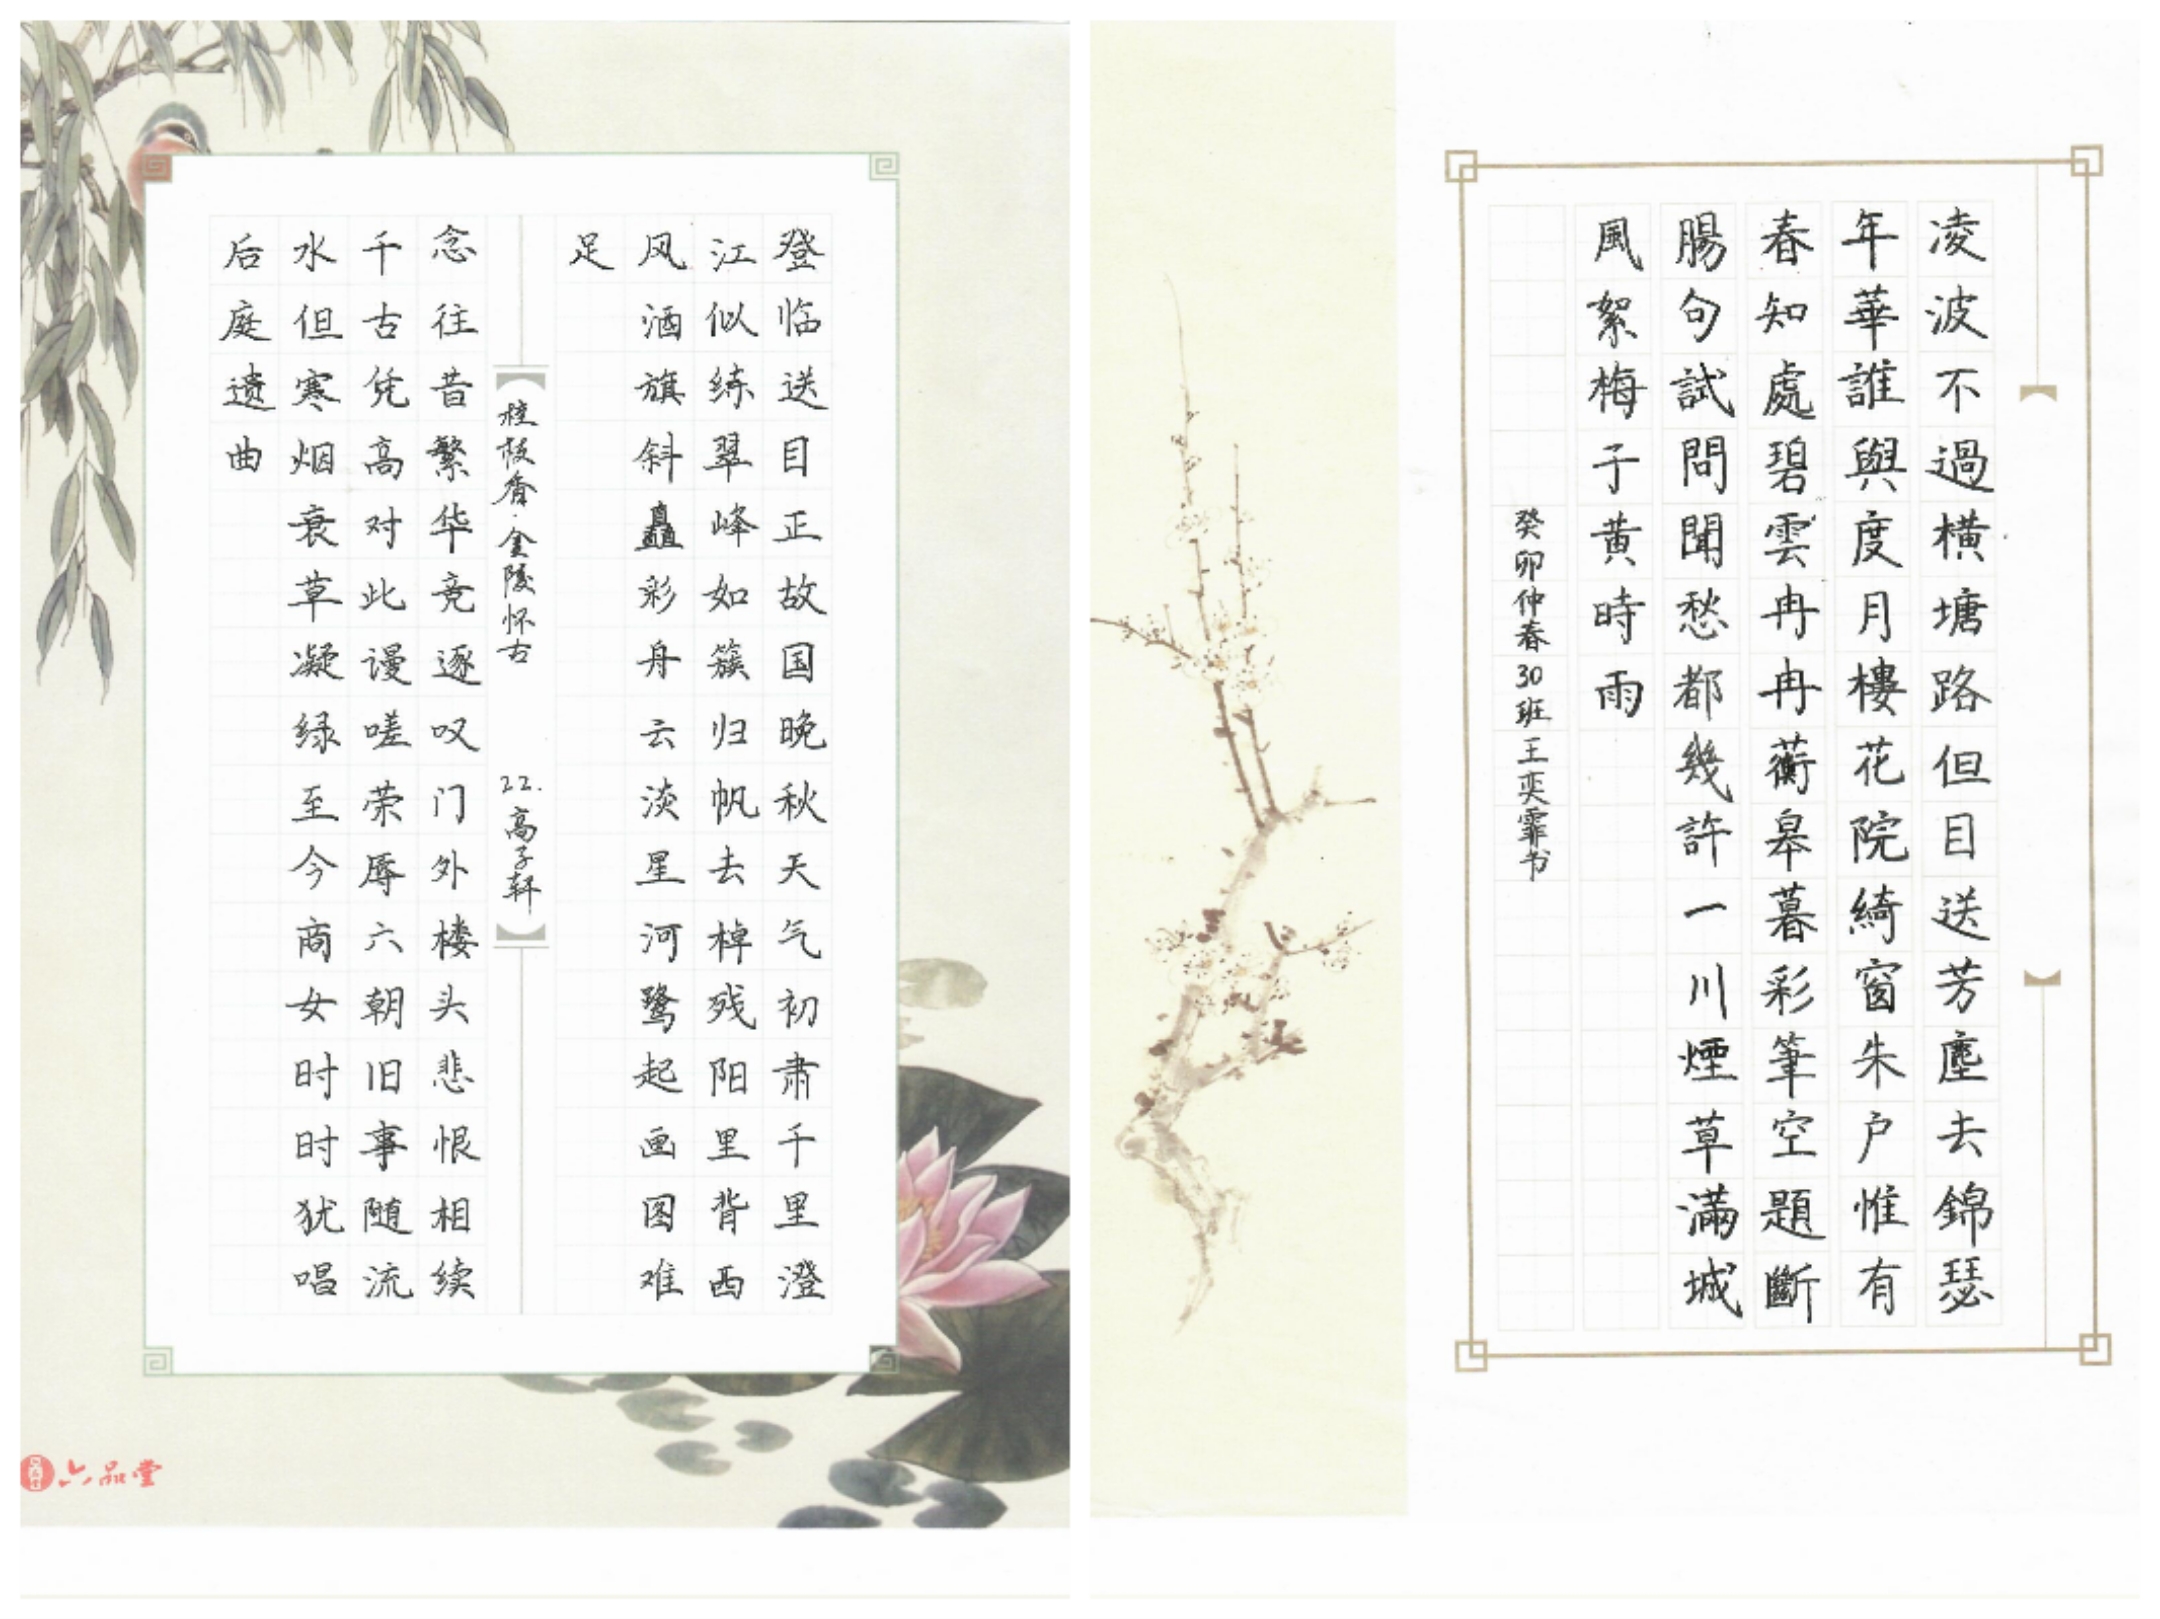 登临送目正故国晚秋天气初肃千里澄
江似练翠峰如簇归帆去棹残阳里背西
风酒旗斜矗彩舟云淡星河鹭起画图难
足
桂枝香·金陵怀古 22.高子轩
念往昔繁华竞逐叹门外楼头悲恨相续
千古凭高对此谩嗟荣辱六朝旧事随流
水但寒烟衰草凝绿至今商女时时犹唱
后庭遗曲
六品堂
凌波不過横塘路但目送芳塵去錦瑟
年華誰與度月樓花院綺窗朱户惟有
春知處碧雲冉冉蘅皋暮彩筆空題斷
腸句試問聞愁都幾許一川煙草滿城
風絮梅子黄時雨
癸卯仲春30班王奕霏书